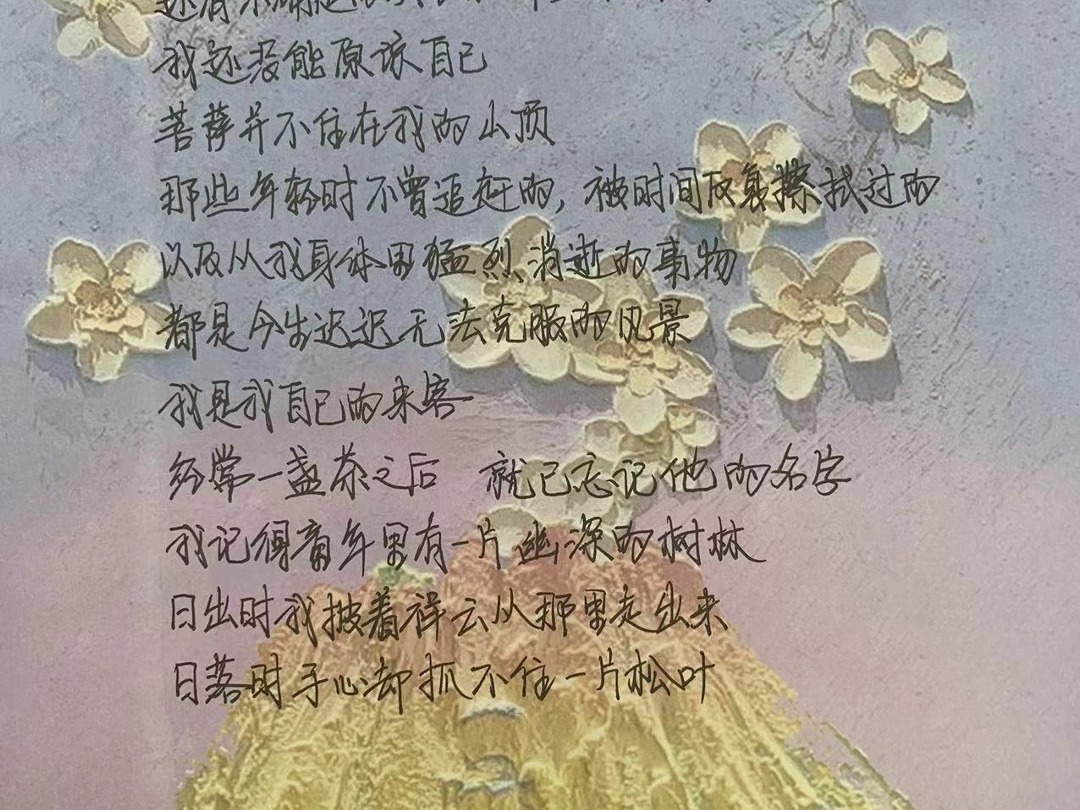 我还没能原谅自己
菩萨并不住在我的山顶
那些年轻时不曾追赶的，被时间反复擦拭过的
以及从我身体里猛烈消逝的事物
都是今生迟迟无法克服的风景
我是我自己的来客
经常一盏茶之后 就已忘记他的名字
我记得童年里有一片幽深的树林
日出时我披着祥云从那里走出来
日落时手心却抓不住一片松叶